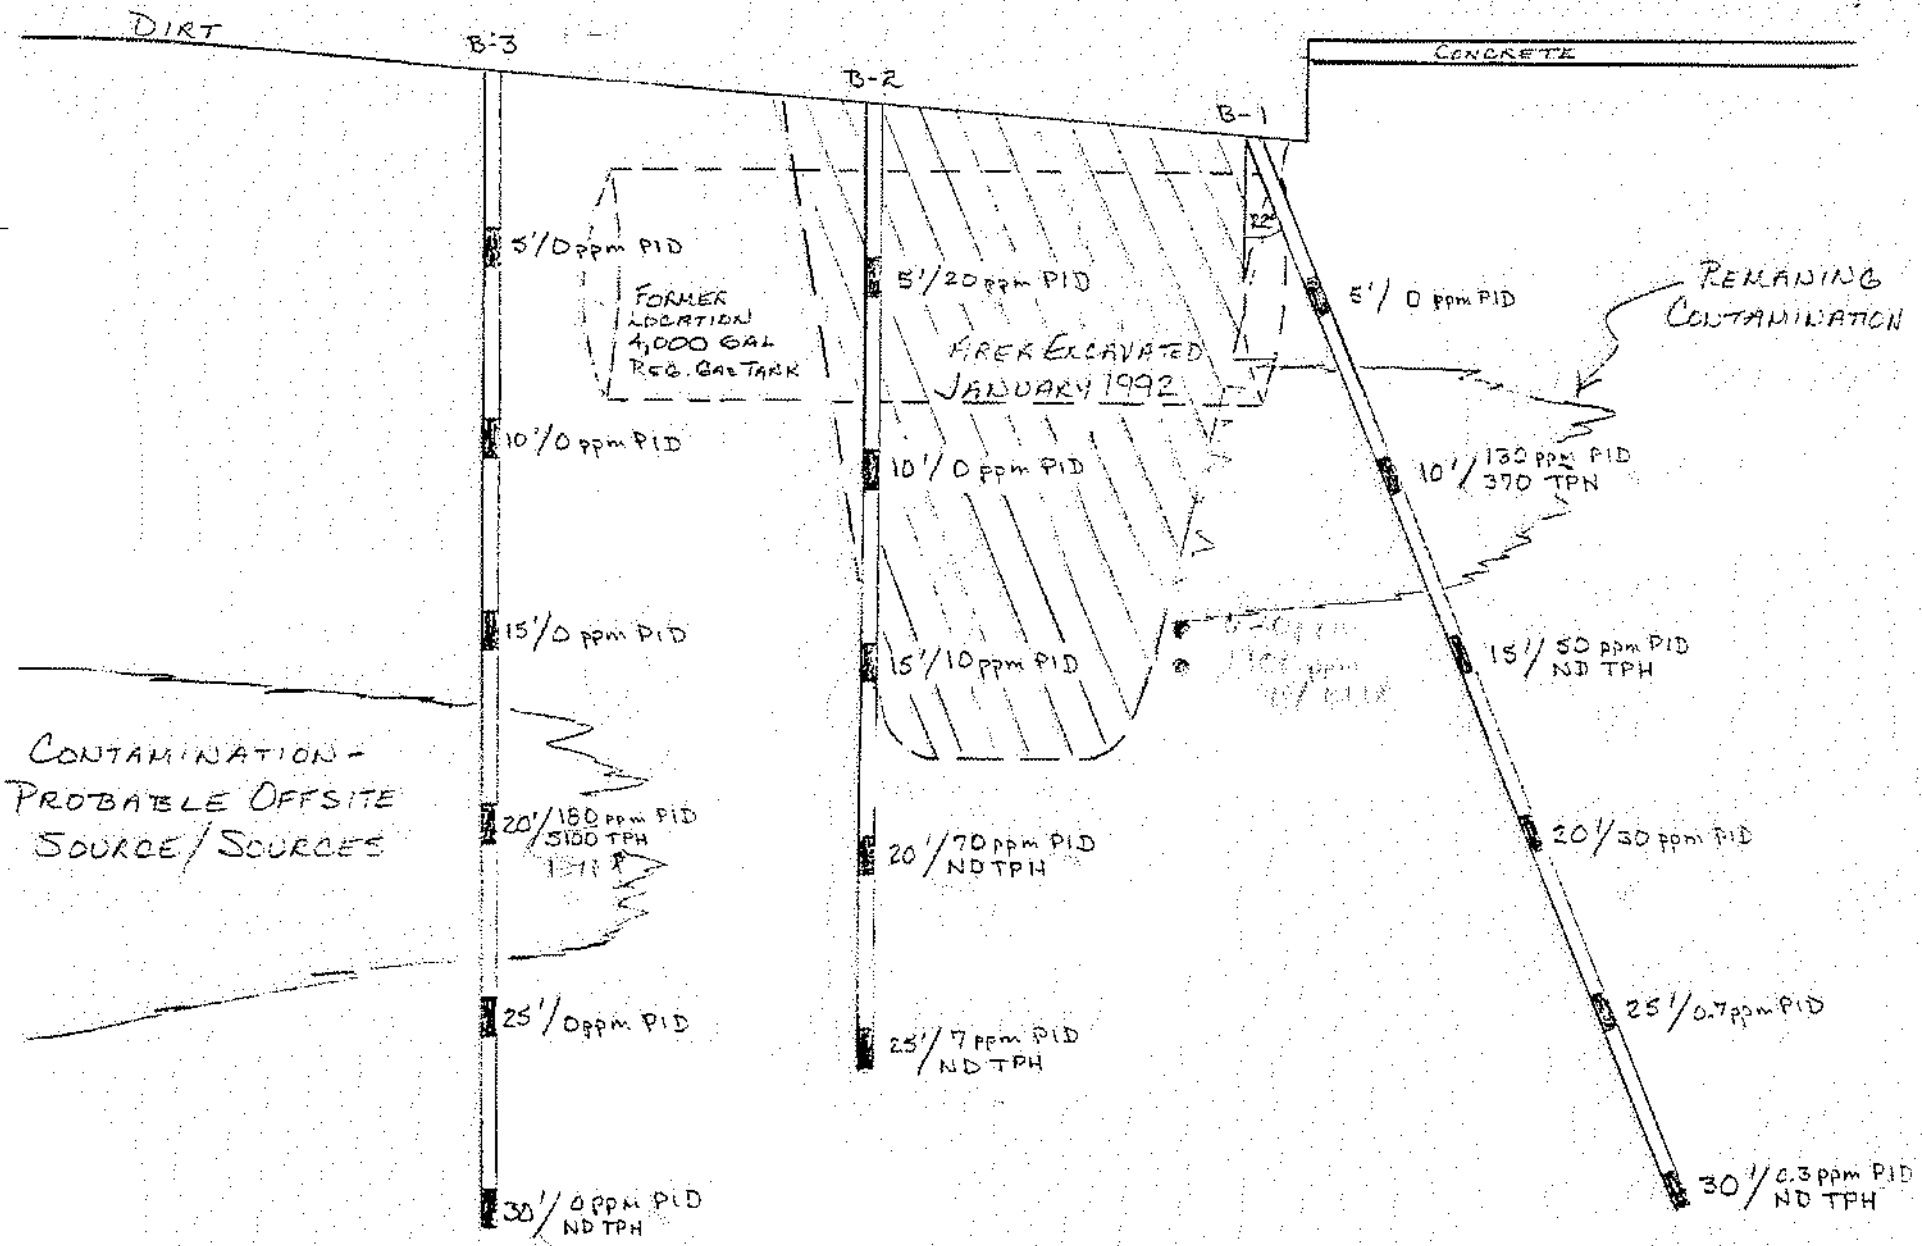 DIRT
B-3
B-2
B-1
CONCRETE
22°
5'/0 ppm PID
FORMER
LOCATION
4,000 GAL
REG. GAS TANK
5'/20 ppm PID
AREA EXCAVATED
JANUARY 1992
5'/ 0 ppm PID
REMANING
CONTAMINATION
10'/0 ppm PID
10'/0 ppm PID
10'/ 130 ppm PID
370 TPN
15'/0 ppm PID
15'/10 ppm PID
15'/ 50 ppm PID
ND TPH
CONTAMINATION -
PROBABLE OFFSITE
SOURCE/SOURCES
20'/180 ppm PID
5100 TPH
20'/70 ppm PID
ND TPH
20'/30 ppm PID
25'/0 ppm PID
25'/7 ppm PID
ND TPH
25'/0.7 ppm PID
30'/0 ppm PID
ND TPH
30'/0.3 ppm PID
ND TPH